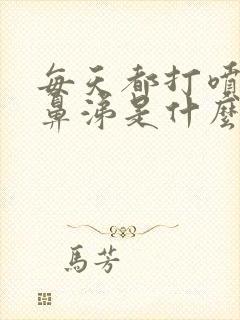 每天都打噴
鼻涕是什麼
馬芳